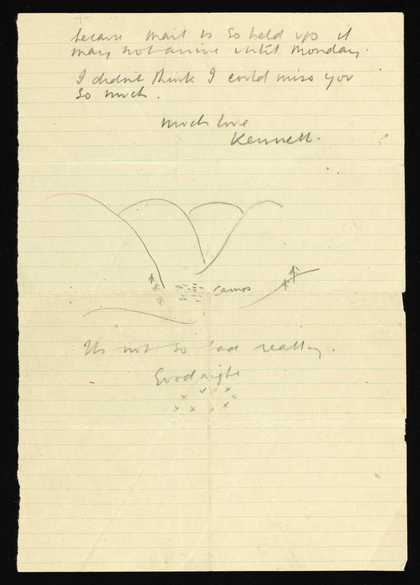 because mail is so held up it
may not arrive until Monday.
I didn't think I could miss you
so much.
Much love
Kenneth.
camp
Its not so bad really.
Goodnight
x x x x
x x x x